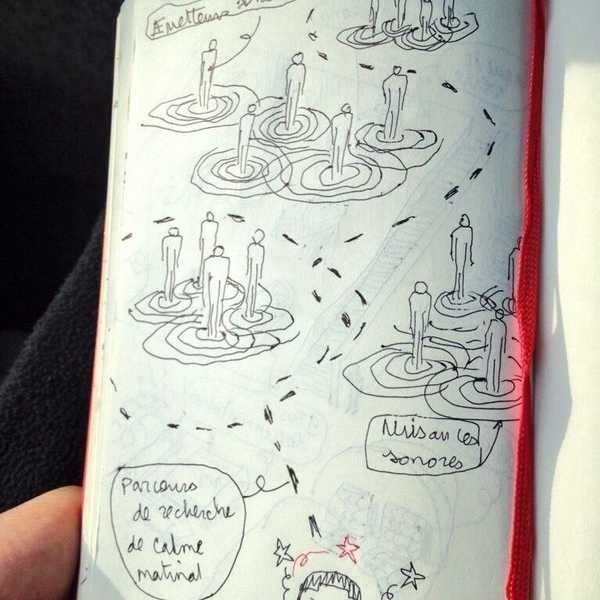 Emetteurs
Nuisances
sonores
Parcours
de recherche
de calme
matinal